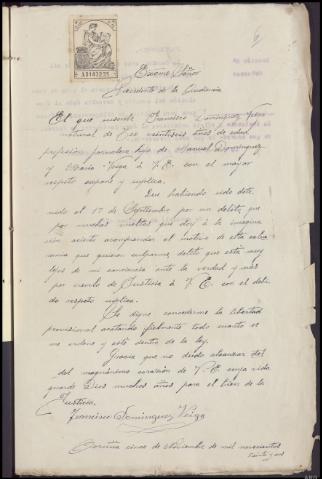 A3163225
Excmo Señor
Presidente de la Audiencia
El que suscribe Francisco Dominguez Veiga
natural de veintiseis años de edad
profesion jornalero hijo de Manuel Dominguez
y Maria Veiga à V.E. con el mayor
respeto expone y suplica.
Que habiendo sido dete
nido el 17 de Septiembre por un delito que
por muchas vueltas que doy à la imagina
ción acierte el motivo de esta calum
nia que quieren culparme, delito que esta muy
lejos de mi conciencia ante la verdad y mas
por cuanto de Justicia à V.E. con el debi
do respeto suplica.
Se digne concederme la libertad
provisional acatando fielmente todo cuanto se
me ordene y esté dentro de la ley.
Gracia que no dudo alcanzar del
del magnánimo corazón de V.E. cuya vida
guarde Dios muchos años para el bien de la
Justicia.
Francisco Dominguez Veiga
Coruña cinco de Noviembre de mil novecientos